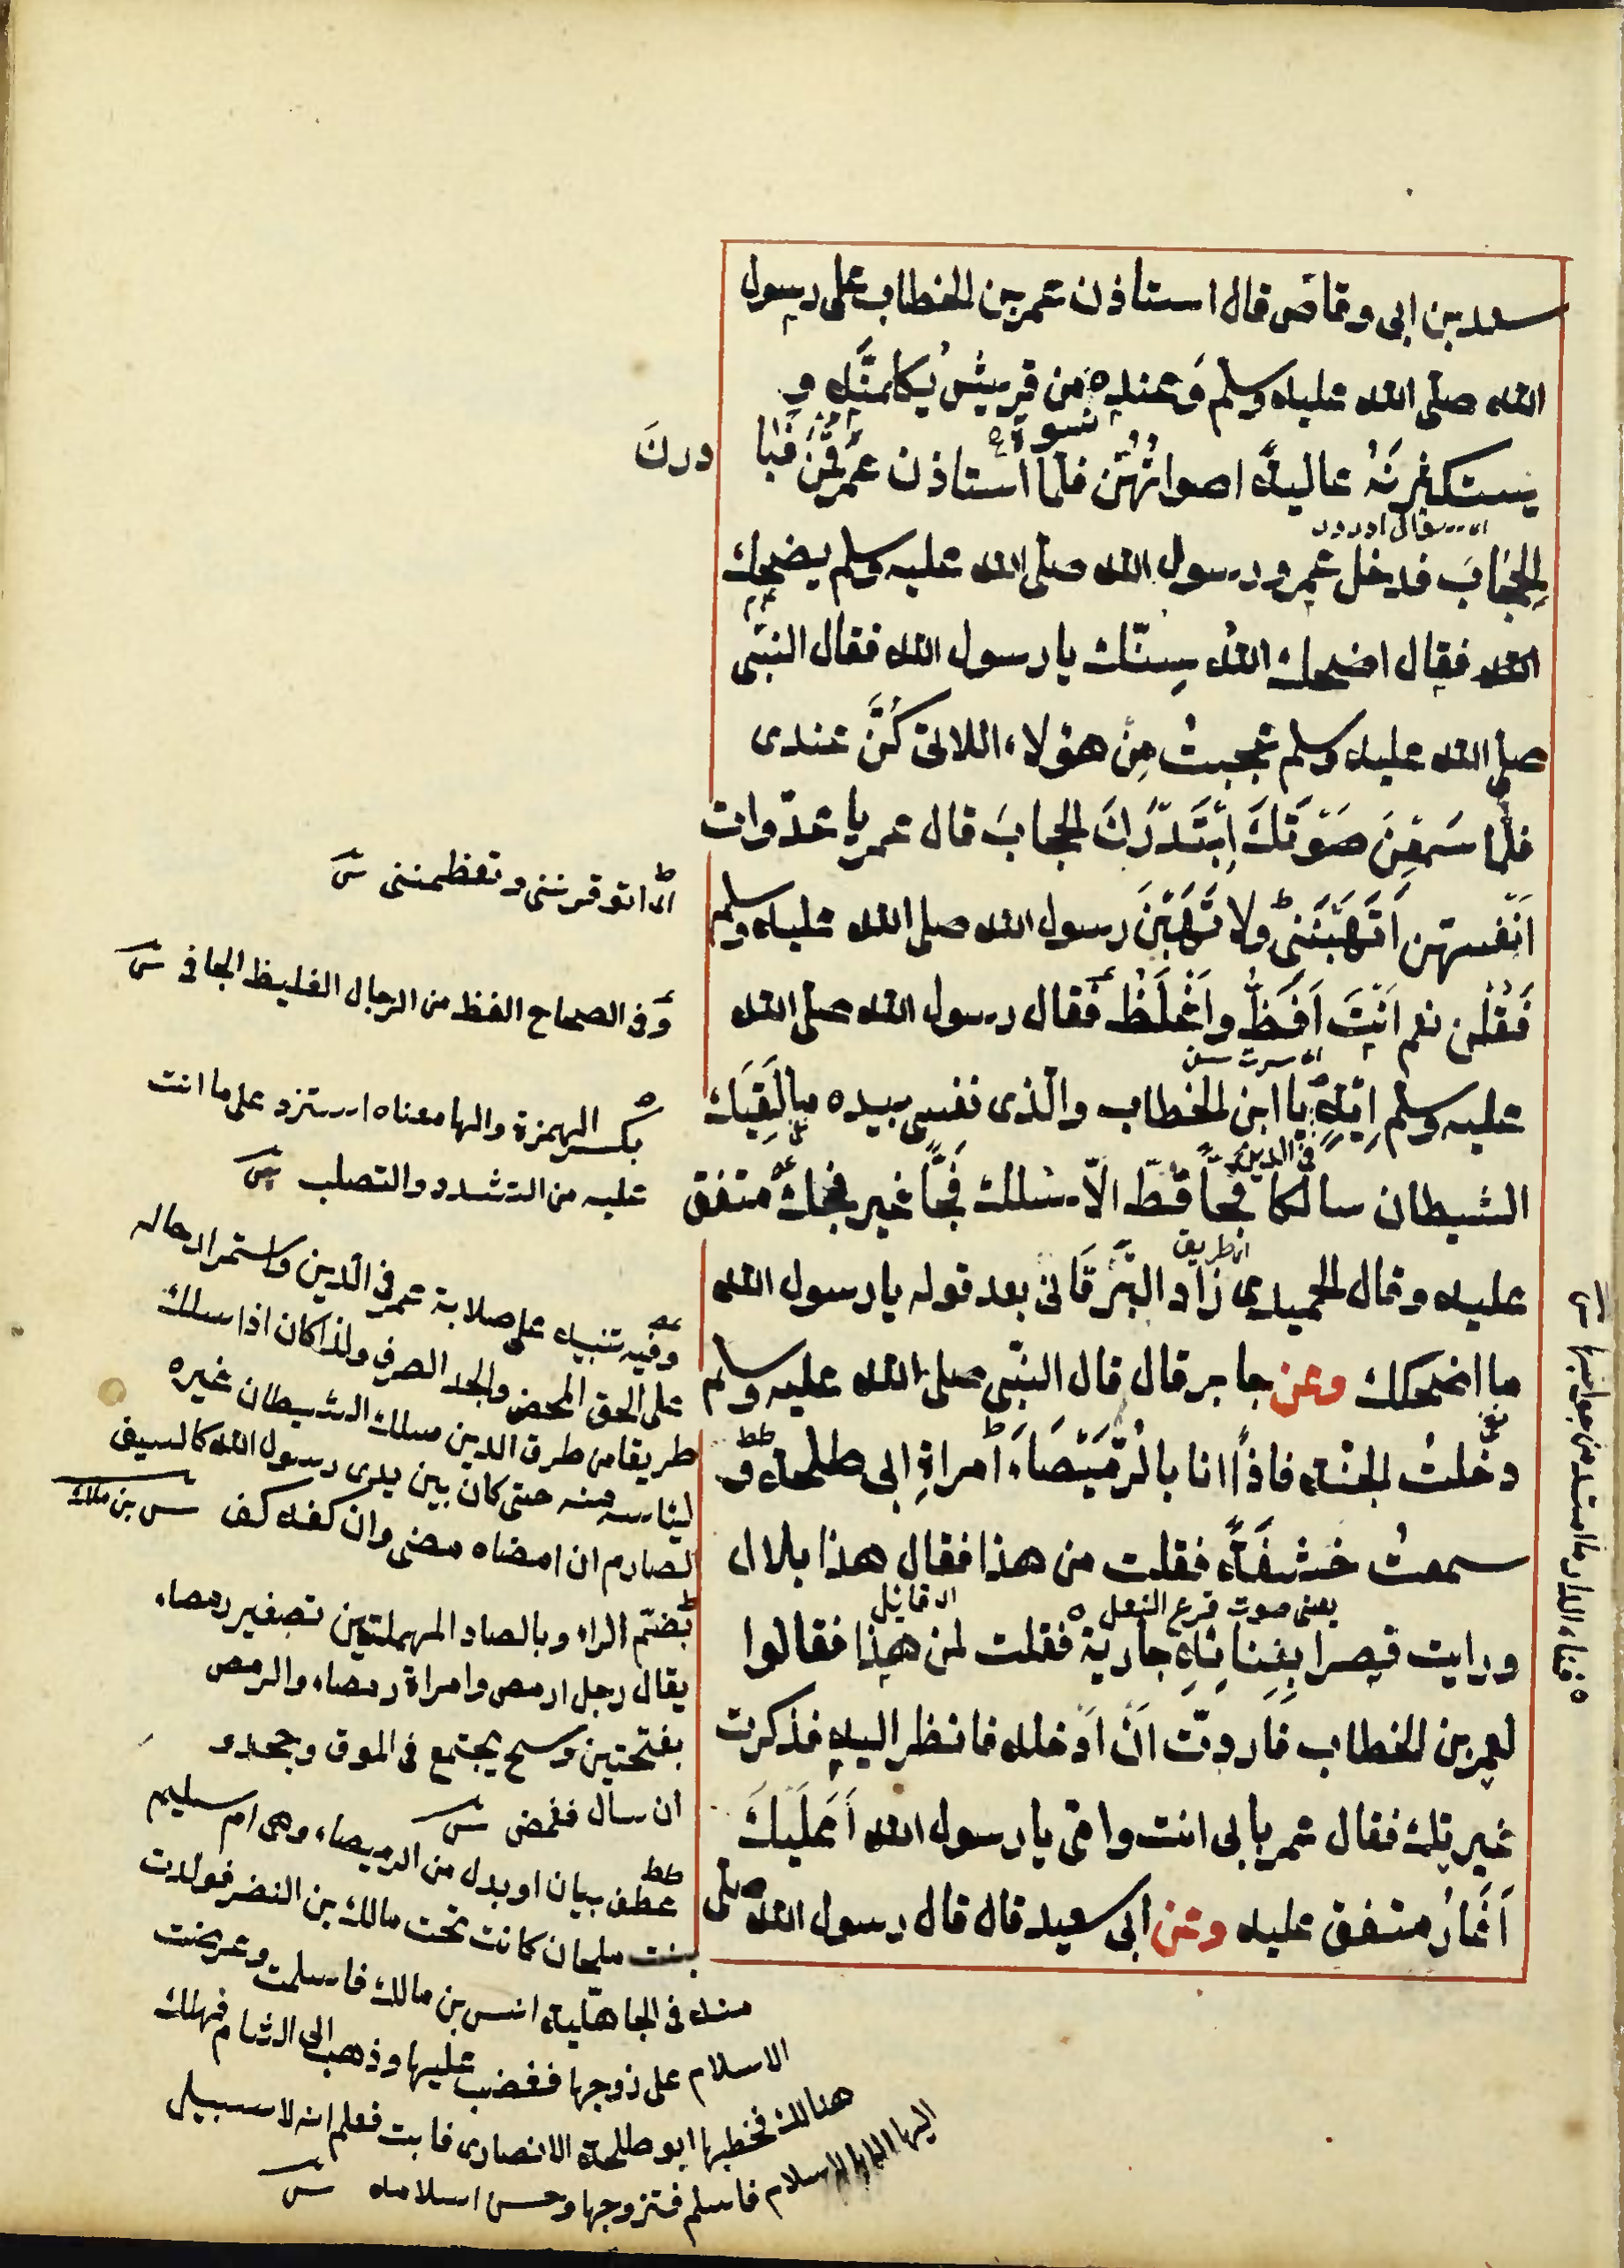 سعد بن ابى وقاص قال استاذن عمر بن الخطاب على رسول
الله صلى الله عليه وسلم وَعنده من قريش يُكلمنَّه و
نسوة
يستكثرنَهُ عاليةً اصواتُهُن فلما استاذن عمر قُمْنَ فَبَا
درنَ
الحجَابَ فدخل عمر ورسول الله صلى الله عليه وسلم يضحك
عمر
الله فقال اضحك الله سِنّك يا رسول الله فقال النبى
صلى الله عليه وسلم عجبتُ مِن هؤلاء اللاتى كُنَّ عندى
فلما سَمِعْنَ صَوْتَكَ اِبْتَدَرْنَ الحجابَ قال عمر يا عدّوات
اَنفسهن اَتَهَبْنَنِى ولا تَهَبْنَ رسول الله صلى الله عليه وسلم
فَقُلْن نعم اَنْتَ اَفَظُّ واَغْلَظُ فقال رسول الله صلى الله
عليه وسلم اِيْهٍ يا ابن الخطاب والّذى نفسى بيده ما لَقِيَك
فى الدين
الشيطان سالكا فجًا قطّ الّا سلك فَجًّا غير فجك متفق
اى طريق
عليه وقال الحميدى زَاد البَرْقَانى بعد قوله يا رسول الله
ما اضحكك وعن جابر قال قال النّبى صلى الله عليه وسلم
دخلتُ الجنّة فاذًا انا بالرُّمَيْصَاءَ امراةِ ابى طلحة و
سمعتُ خشفَةً فقلت من هذا فقال هذا بلال
يعنى صوت قرع النعل
ورايت قصرا بِفِنَائِهِ جارية فقلت لمن هذا فقالوا
لعمر بن الخطاب فاردتّ اَنْ اَدْخله فانظر اليه فذكرت
غيرتك فقال عمر بابى انت وامّى يا رسول الله اَعَلَيكَ
اَغَارُ متفق عليه وعن ابى سعيد قال قال رسول الله صلى
اى اتوقرننى وتعظمننى
وفى الصحاح الفظ من الرجال الغليظ الجافى
بكسر الهمزة والها معناه استزد على ما انت
عليه من التشدد والتصلب
وفيه تنبيه على صلابة عمر فى الدين واستمرار حاله
على الحق المحض والجد الصرف ولذا كان اذا سلك
طريقا من طرق الدين سلك الشيطان غيره
منه حتى كان بين يدى رسول الله كالسيف
الصارم ان امضاه مضى وان كفه كف
بضمّ الراء وبالصاد المهملتين تصغير رمصاء
يقال رجل ارمص وامراة رمصاء والرمص
بفتحتين وسخ يجتمع فى الموق وجمد و
ان سال فغمض
عطف بيان او بدل من الرميصاء وهى ام سليم
بنت ملحان كانت تحت مالك بن النضر فولدت
منه فى الجاهليّة انس بن مالك فاسلمت وعرضت
الاسلام على زوجها فغضب عليها وذهب الى الشام فهلك
هنالك فخطبها ابو طلحة الانصارى فابت فعلم انه لا سبيل
اليها الا بالاسلام فاسلم فتزوجها وحسن اسلامه
فناء الدار ما امتد من جوانبها